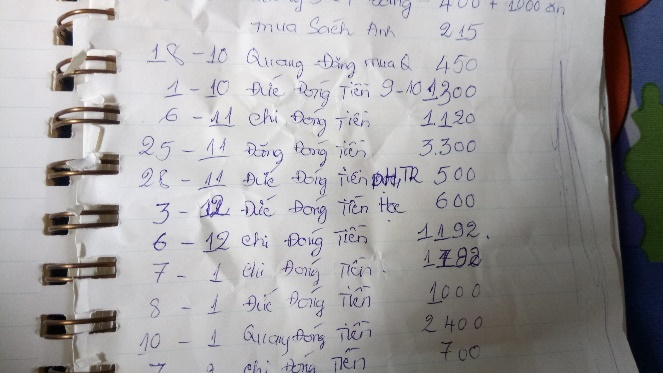 400 + 1000 ăn
mua Sách Anh 215
18 - 10 Quang Đăng mua Q 450
1 - 10 Đức Đóng Tiền 9-10 1300
6 - 11 Chi Đóng Tiền 1.120
25 - 11 Đăng Đóng Tiền 3.300
28 - 11 Đức Đóng Tiền 500
3 - 12 Đức Đóng Tiền Học 600
6 - 12 Chi Đóng Tiền 1192.
7 - 1 Chi Đóng Tiền.
8 - 1 Đức Đóng Tiền 1000
10 - 1 Quang Đóng Tiền 2400
Chi Đóng Tiền 700